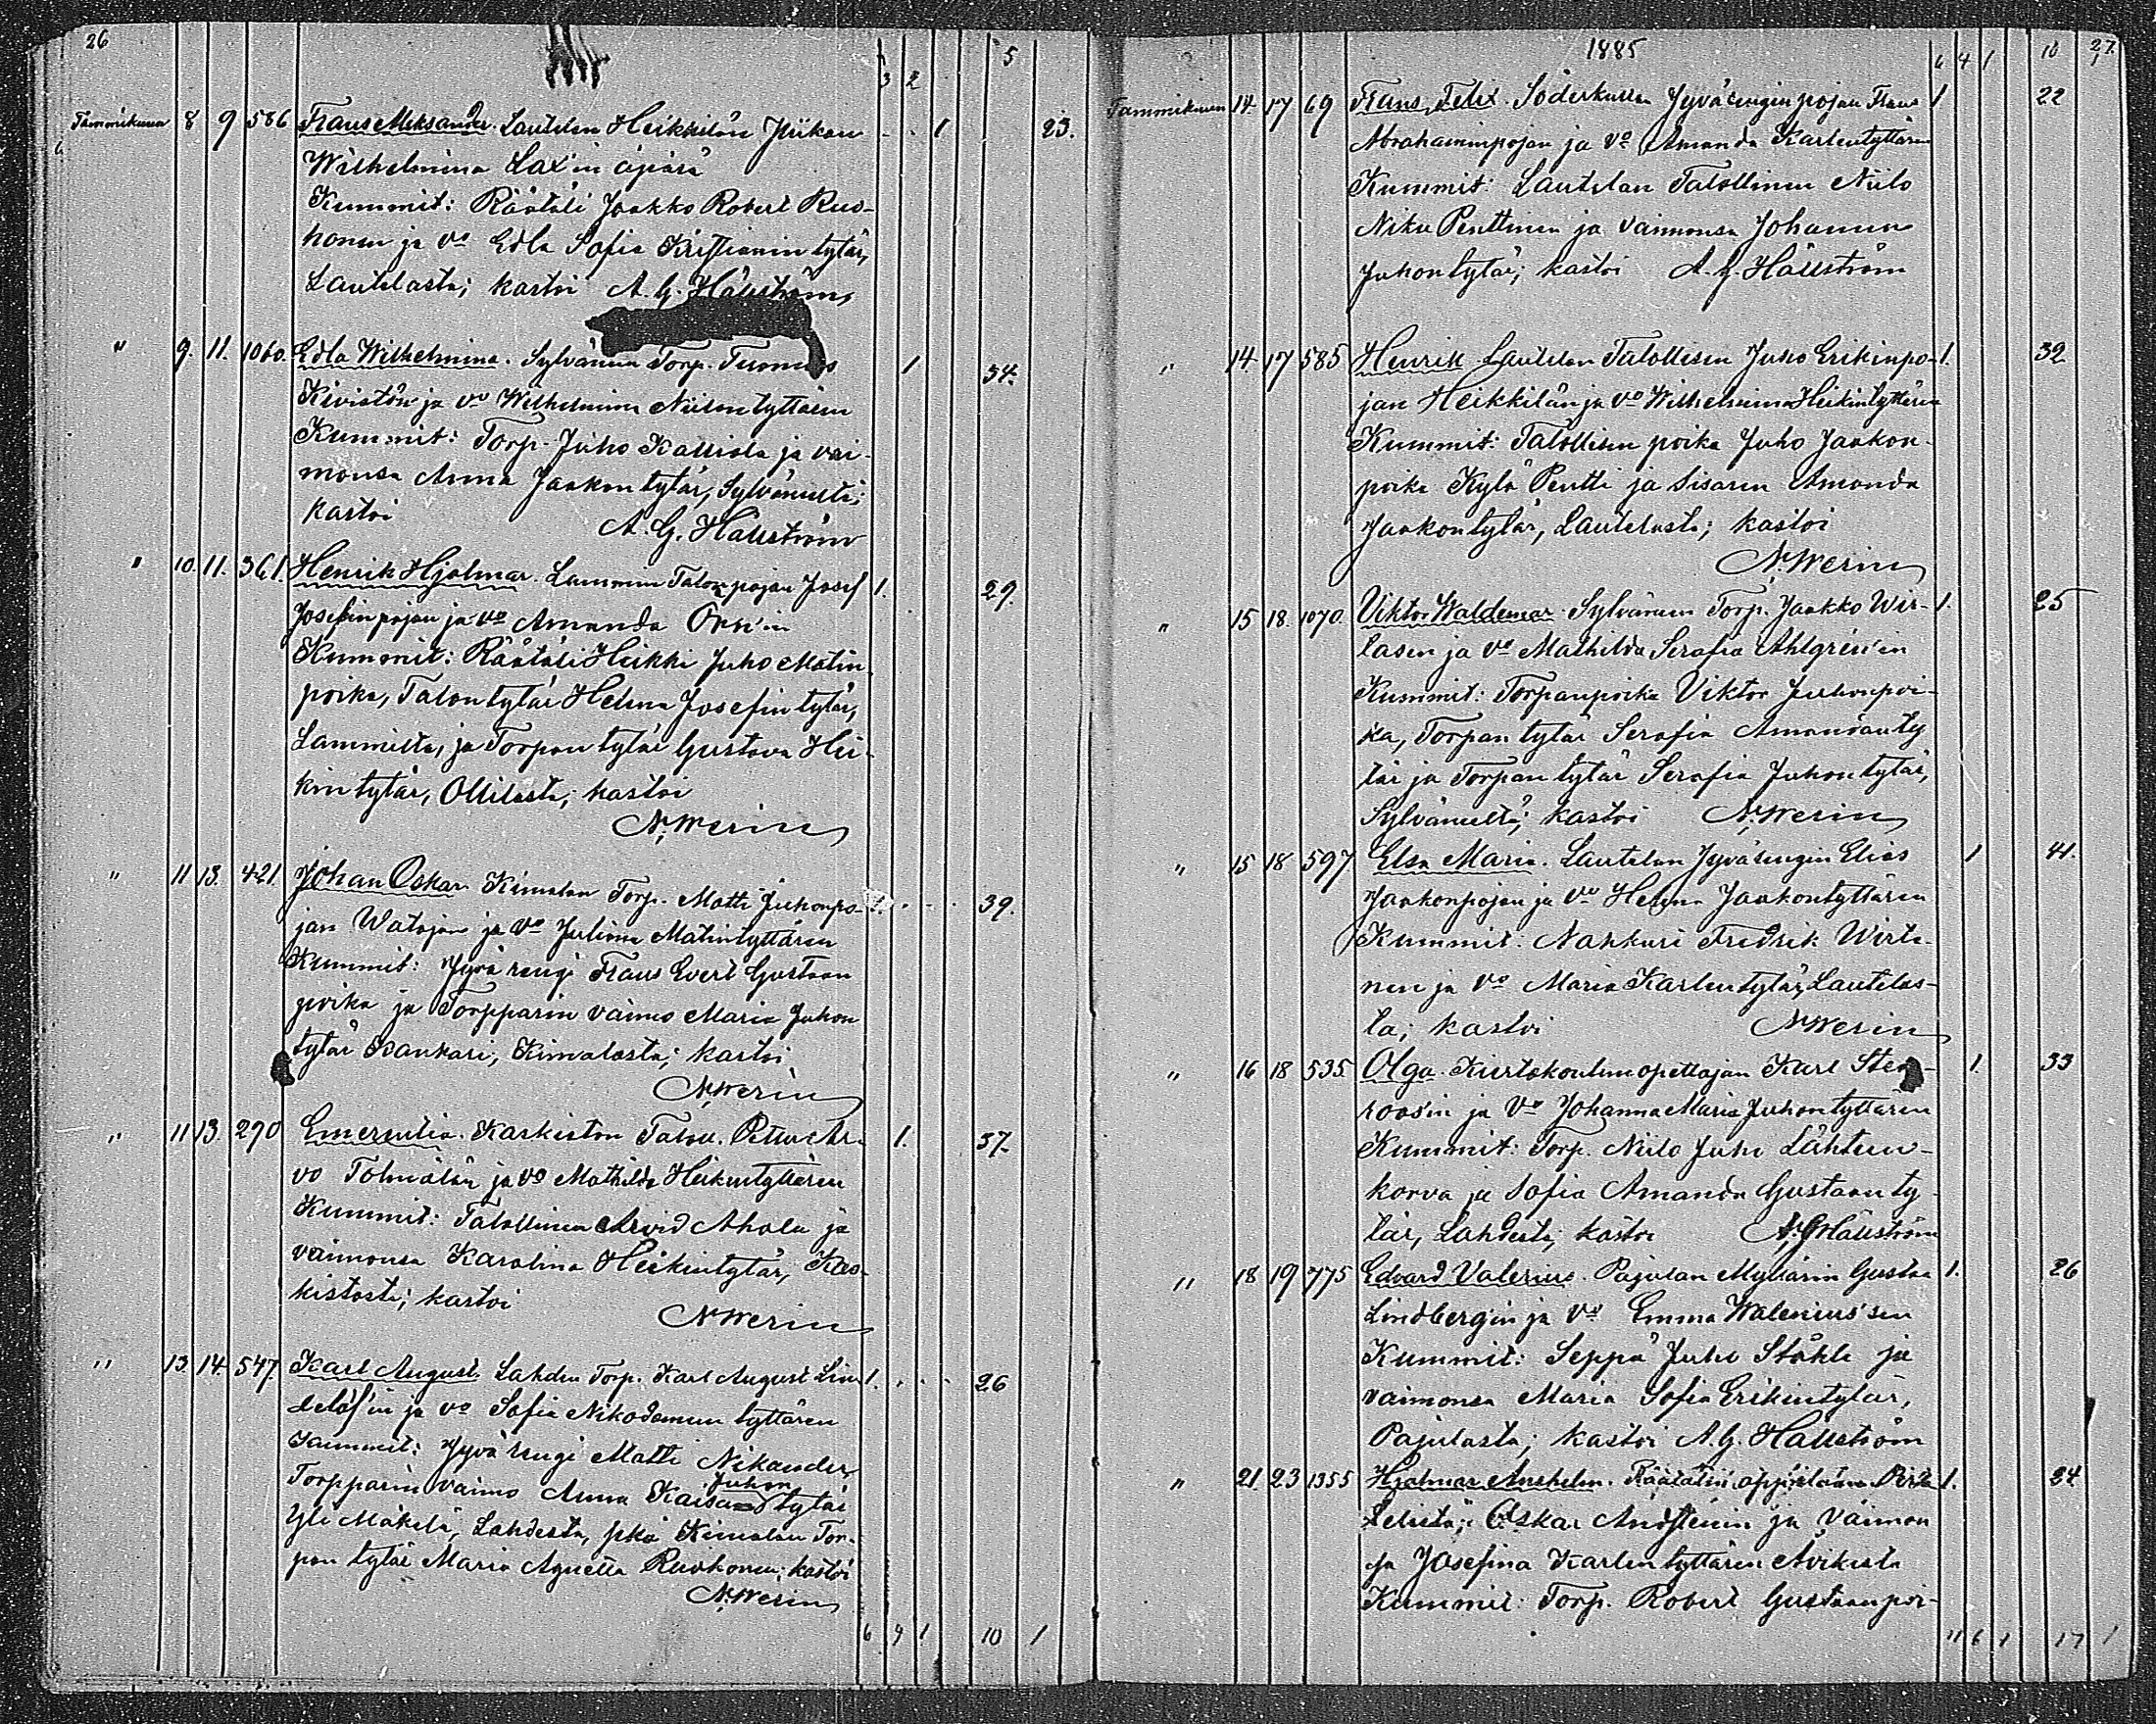 26
5
3 2
Tammikuun 8 9 586 Frans Aleksander. Lautelan Heikkilän Piikan 1 23.
Wilhelmina Lax'in äpärä
Kummit: Räätäli Jaakko Robert Ruo-
honen ja vo Edla Sofia Kristianin tytär,
Lautelasta; kastoi A. G. Hällström
" 9. 11. 1060. Edla Wilhelmina. Sylvänän Torp. Tuomas 1 34.
Kivistön ja vo Wilhelmina Niilontyttären
Kummit: Torp. Juho Kalliola ja vai-
monsa Anna Jaakontytär, Sylvänältä;
kastoi A. G. Hällström
" 10. 11. 361. Henrik Hjalmar. Lammin Talonpojan Josef 1. 29.
Josefinpojan ja vo Amanda Orn'in
Kummit: Räätäli Heikki Juho Matin
poika, Talontytär Helena Josefin tytär,
Lammilta, ja Torpantytär Gustava Hei-
kintytär, Ollilasta; kastoi
N. Werin
" 11 13. 421. Johan Oskar. Kimalan Torp. Matti Juhonpo- 1. 39.
jan Watajan ja vo Juliana Matintyttären
Kummit: Jyvärengi Frans Evert Gustaan
poika ja Torpparin vaimo Maria Juhon
tytär Sankari, Kimalasta; kastoi
N. Werin
" 11 13. 290 Emerentia. Karkiston Taloll. Petter Ar- 1. 37.
vo Tolmälän ja vo Mathilda Heikintyttären
Kummit: Talollinen Arvid Ahola ja
vaimonsa Karolina Heikintytär, Kar-
kistosta; kastoi
N. Werin
" 13. 14. 547. Karl August. Lahden Torp. Karl August Lin- 1. 26
delöf'in ja vo Sofia Nikodemun tyttären
Kummit: Jyvärengi Matti Nikander,
Torpparin vaimo Anna Kaisa Juhon tytär
Yli Mäkelä, Lahdesta, ja Kimalan Tor-
pan tytär Maria Agnetta Ruohonen; kastoi
N. Werin
6 4 1 10 1
1885
6 4 1 10 27.
1
Tammikuun 14. 17 69 Frans Felix. Söderkullan Jyvärenginpojan Frans 1 22
Abrahaminpojan ja vo Amanda Karlentyttären
Kummit: Lautelan Talollinen Niilo
Niku Penttinen ja vaimonsa Johanna
Juhontytär; kastoi A. G. Hällström
" 14. 17 585 Henrik. Lautelan Talollisen Juho Erikinpo- 1. 32
jan Heikkilän ja vo Wilhelmina Heikintyttären
Kummit: Talollisen poika Juho Jaakon-
poika Kylä Pentti ja sisaren Amanda
Jaakontytär, Lautelasta; kastoi
N. Werin
" 15 18. 1070. Viktor Waldemar. Sylvänän Torp. Jaakko Wir- 1. 25
lasen ja vo Mathilda Serafia Ahlgren'in
Kummit: Torpanpoika Viktor Juhonpoi-
ka, Torpan tytär Serafia Amandanty-
tär ja Torpan tytär Serafia Juhontytär,
Sylvänältä; kastoi N. Werin
" 15 18 597 Elsa Maria. Lautelan Jyvärengin Elias 1 41.
Jaakonpojan ja vo Helena Jaakontyttären
Kummit: Nahkuri Fredrik Wirta-
nen ja vo Maria Karlentytär, Lautelas-
ta; kastoi N. Werin
" 16 18 535. Olga. Kiertokoulunopettajan Karl Sten- 1. 33
roos'in ja vo Johanna Maria Juhontyttären
Kummit: Torp. Niilo Juho Lähteen-
korva ja Sofia Amanda Gustaanty-
tär, Lahdesta; kastoi A. G. Hällström
" 18 19 775 Edvard Valerius. Pajulan Myllärin Gustaa 1. 26
Lindbergin ja vo Emma Walenius'sen
Kummit: Seppä Juho Ståhle ja
vaimonsa Maria Sofia Erikintytär,
Pajulasta; kastoi A. G. Hällström
" 21. 23 1355 Hjalmar Anshelm. Räätälin oppilaan 1. 24.
Oskar ja vaimon
sa Josefina Karlentyttären Avikista
Kummit: Torp. Robert Gustaanpoi-
11 6 1 17 1